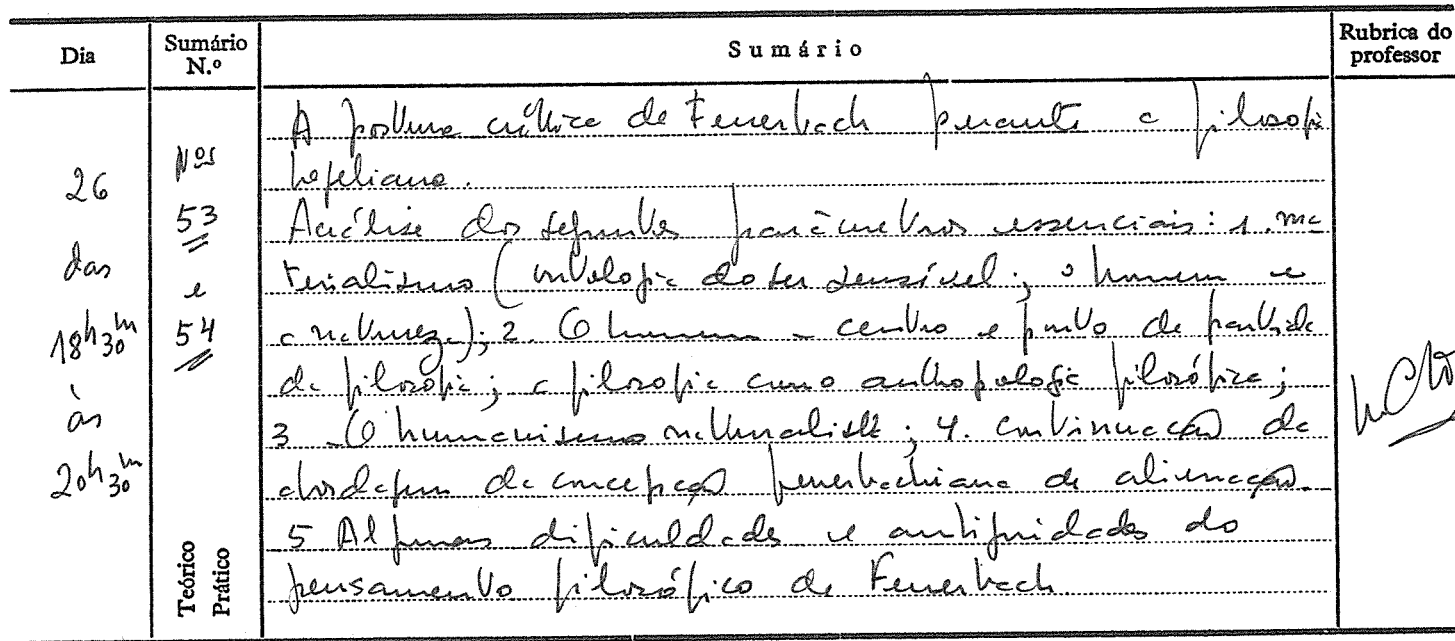 Dia
Sumário N.º
Sumário
Rubrica do professor
26
das
18h30m
às
20h30m
Nos
53
e
54
Teórico
Prático
A postura crítica de Feuerbach perante a filosofia
hegeliana.
Análise dos seguintes parâmetros essenciais: 1. ma
terialismo (ontologia do ser sensível; o homem e
a natureza); 2. O homem - centro e ponto de partida
da filosofia; a filosofia como anthopologia filosófica;
3 - O humanismo naturalista; 4. continuação da
abordagem da concepção feuerbachiana de alienação.
5 Algumas dificuldades e ambiguidades do
pensamento filosófico de Feuerbach